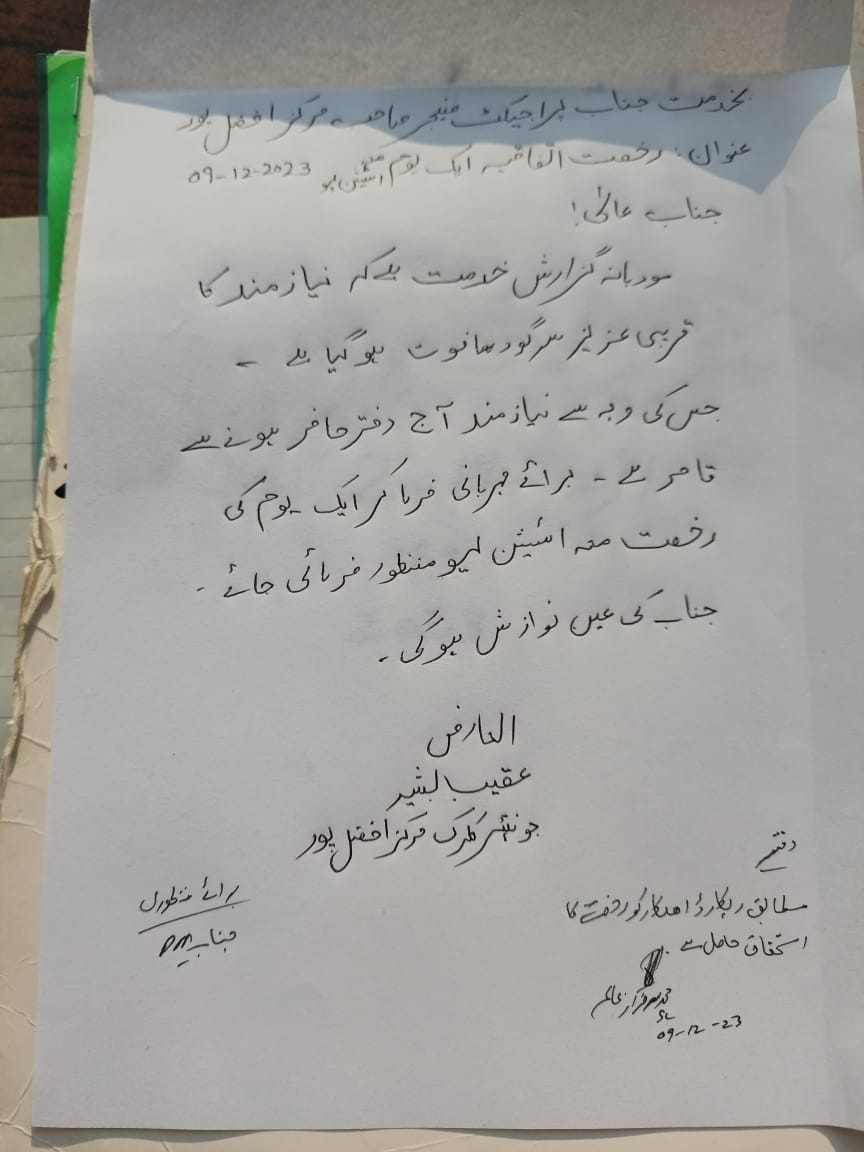 بخدمت جناب پراجیکٹ منیجر صاحب مرکز افضل پور
عنوان: رخصت اتفاقیہ ایک یوم معہ اسٹیشن لیو 09-12-2023
جناب عالی!
مودبانہ گزارش خدمت ہے کہ نیازمند کا
قریبی عزیز سرگودھا فوت ہو گیا ہے ۔
جس کی وجہ سے نیازمند آج دفتر حاضر ہونے سے
قاصر ہے ۔ برائے مہربانی فرما کر ایک یوم کی
رخصت معہ اسٹیشن لیو منظور فرمائی جائے ۔
جناب کی عین نوازش ہوگی ۔
العارض
عقیب البشیر
جونئیر کلرک مرکز افضل پور
دفتر
مطابق ریکارڈ اہلکار کو رخصت کا
استحقاق حاصل ہے ۔
محمد سرفراز عالم
09-12-23
برائے منظوری
جناب PM